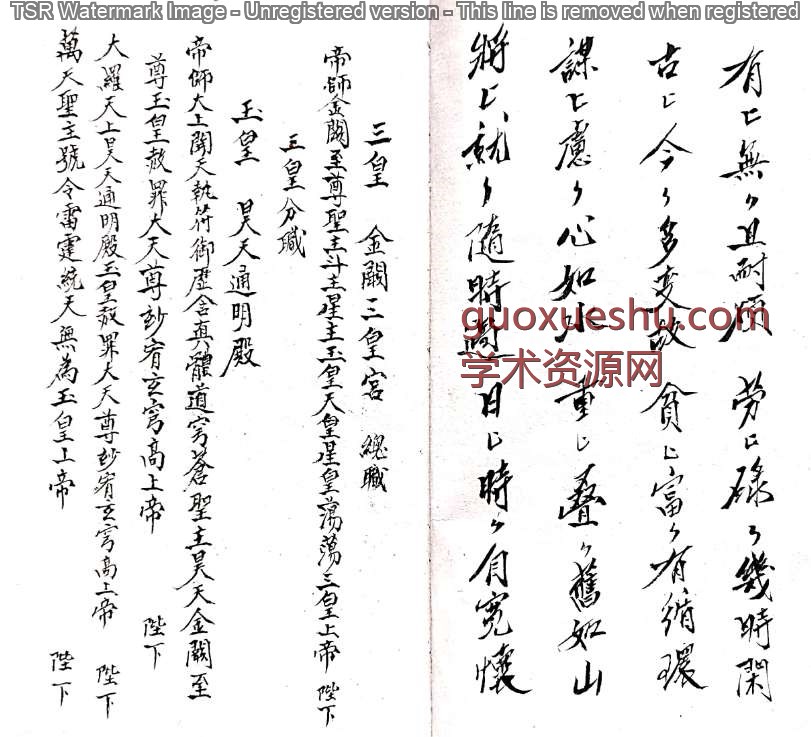 TSR Watermark Image - Unregistered version - This line is removed when registered
有〻無〻且耐煩　勞〻碌〻幾時閑
古〻今〻多变改　貧〻富〻有循環
謀〻慮〻心如水　重〻叠〻舊如山
將〻就〻隨時過　日〻時〻自寬懷
三皇　金闕三皇宮　總職
帝師金闕至尊聖主斗主星主玉皇天皇星皇蕩蕩三皇上帝　陛下
三皇分職
玉皇　昊天通明殿
帝師大上開天執符御歷含真體道穹蒼聖主昊天金闕至
尊玉皇赦罪大天尊玅宥玄穹高上帝　陛下
大羅天上昊天通明殿玉皇赦罪大天尊玅宥玄穹高上帝　陛下
萬天聖主號令雷霆統天無為玉皇上帝　陛下
guoxueshu.com
学术资源网